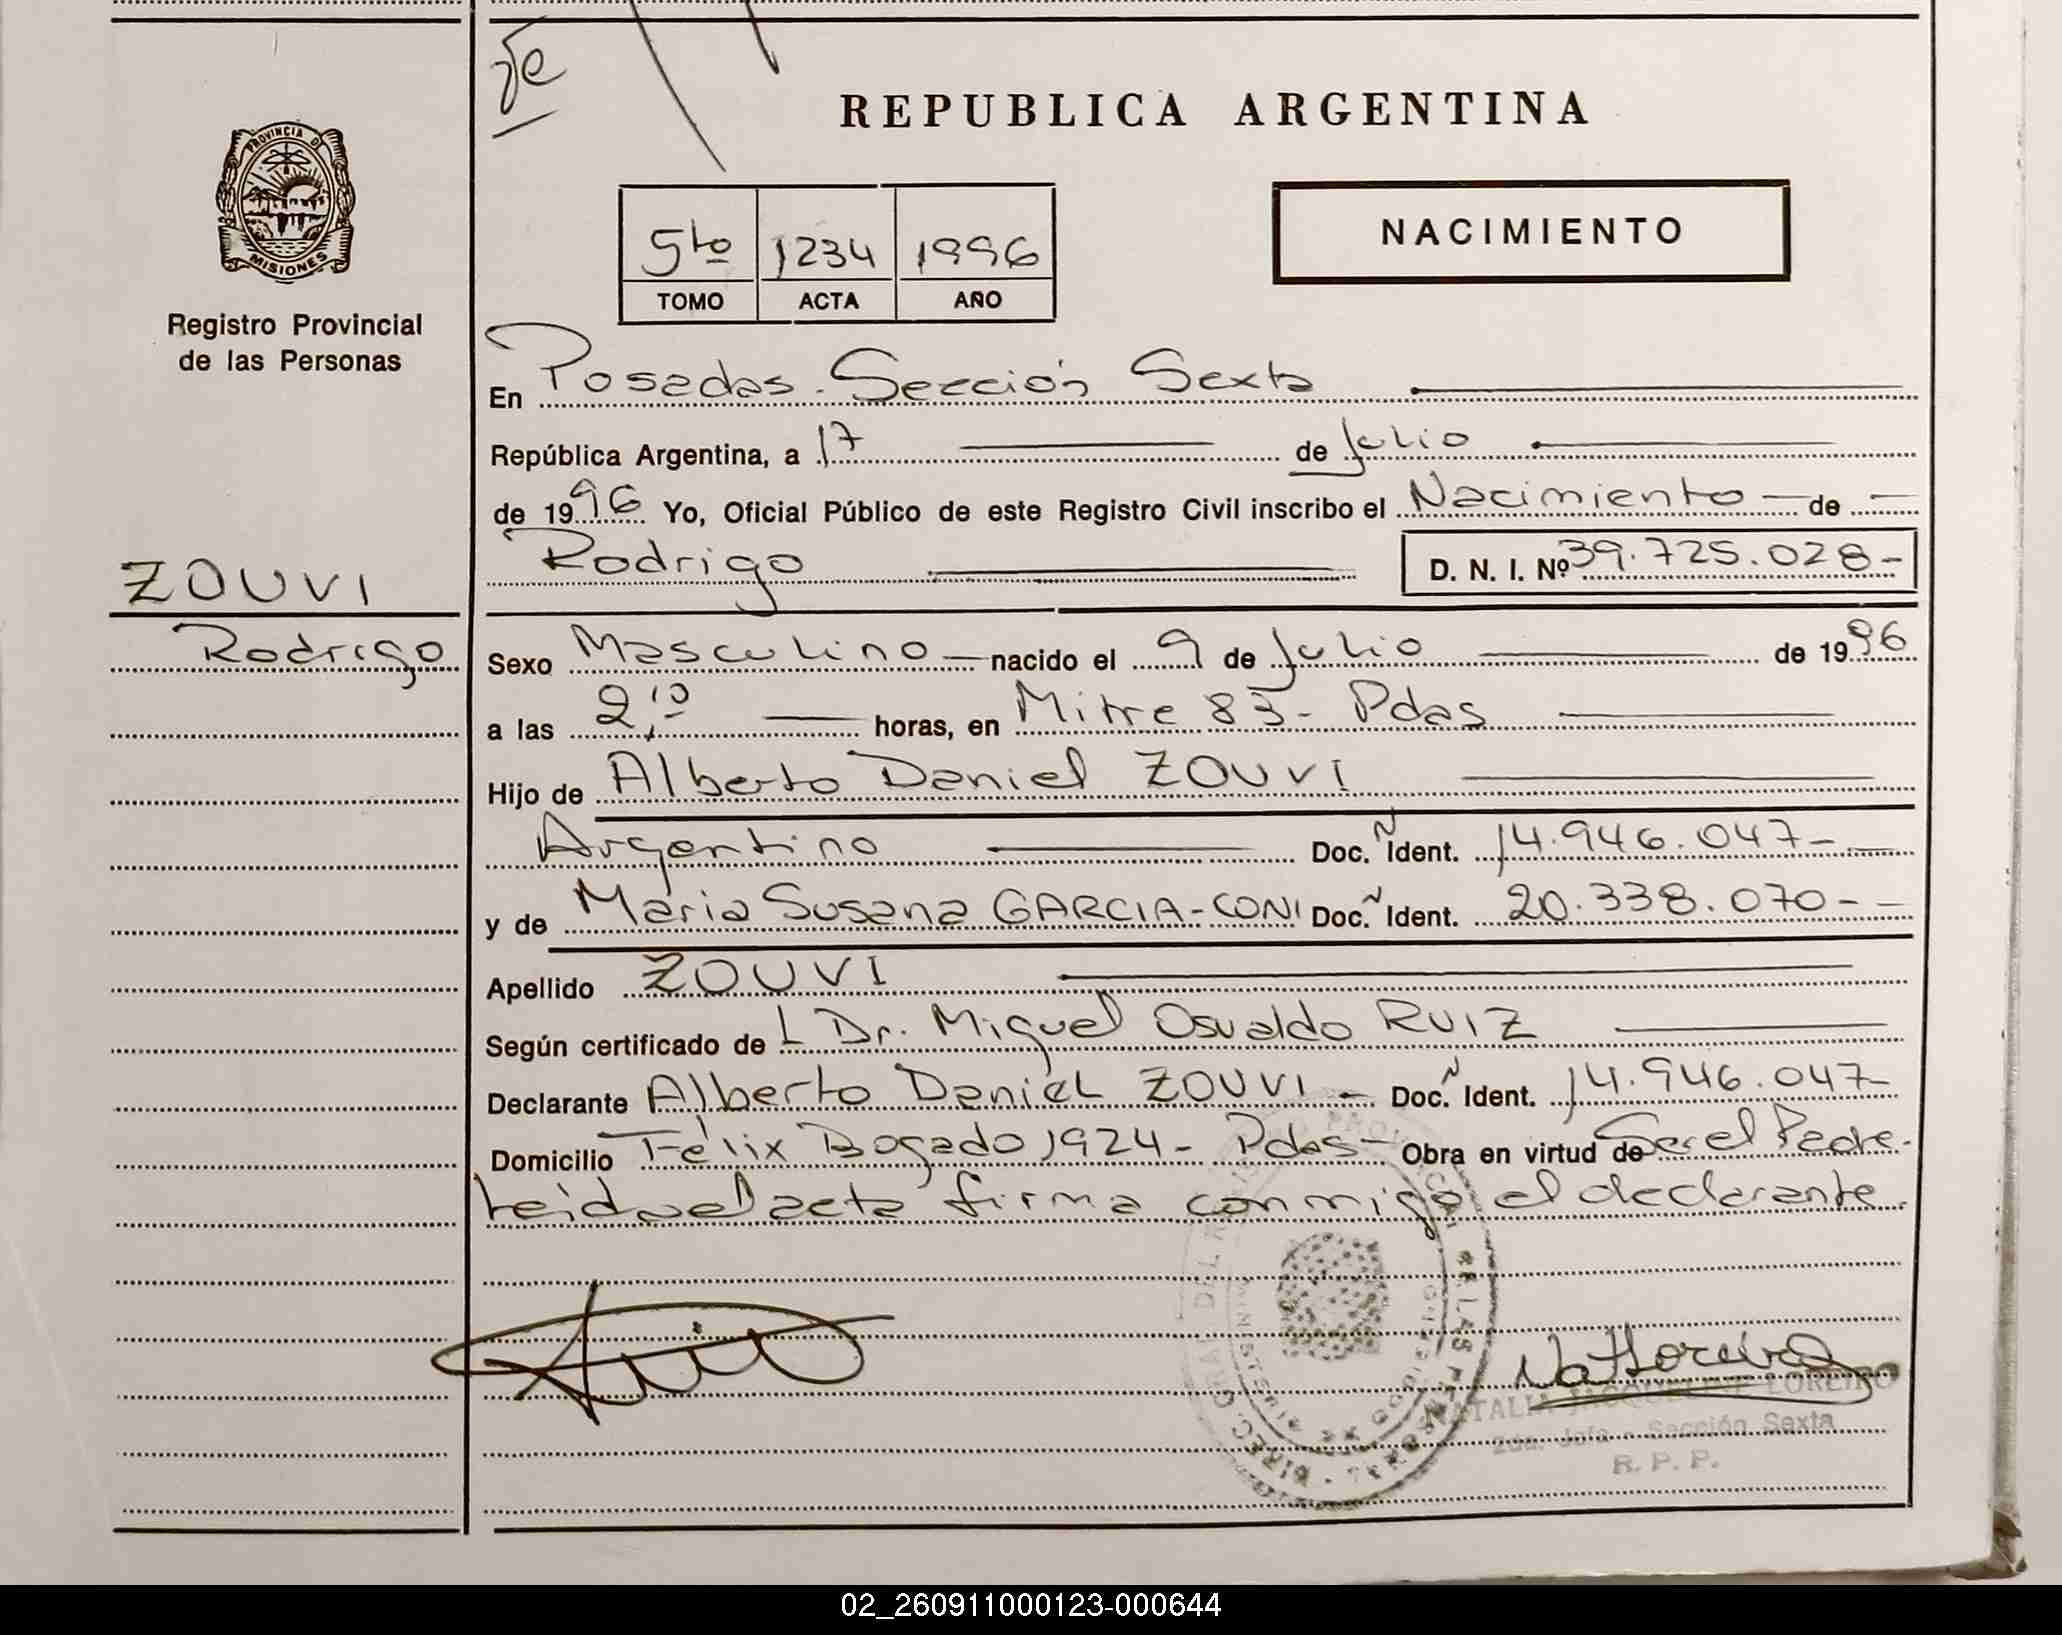 REPUBLICA ARGENTINA
PROVINCIA D
MISIONES
Registro Provincial
de las Personas
5to 1234 1996
TOMO ACTA AÑO
NACIMIENTO
En Posadas - Sección Sexta
República Argentina, a 17 de Julio
de 1996 Yo, Oficial Público de este Registro Civil inscribo el Nacimiento de
Rodrigo D. N. I. Nº 39.725.028-
ZOUVI
Rodrigo
Sexo Masculino nacido el 9 de Julio de 1996
a las 2,10 horas, en Mitre 83- Pdas
Hijo de Alberto Daniel ZOUVI
Argentino Doc. N Ident. 14.946.047-
y de Maria Susana GARCIA-CONI Doc. N Ident. 20.338.070-
Apellido ZOUVI
Según certificado de L Dr. Miguel Osvaldo RUIZ
Declarante Alberto Daniel ZOUVI - Doc. N Ident. 14.946.047-
Domicilio Félix Bogado 1924- Pdas- Obra en virtud de Ser el Padre.
Leida el acta firma conmigo el declarante.
NATALIA JACQUELINE LOREIRO
2da. Jefa - Sección Sexta
R. P. P.
02_260911000123-000644